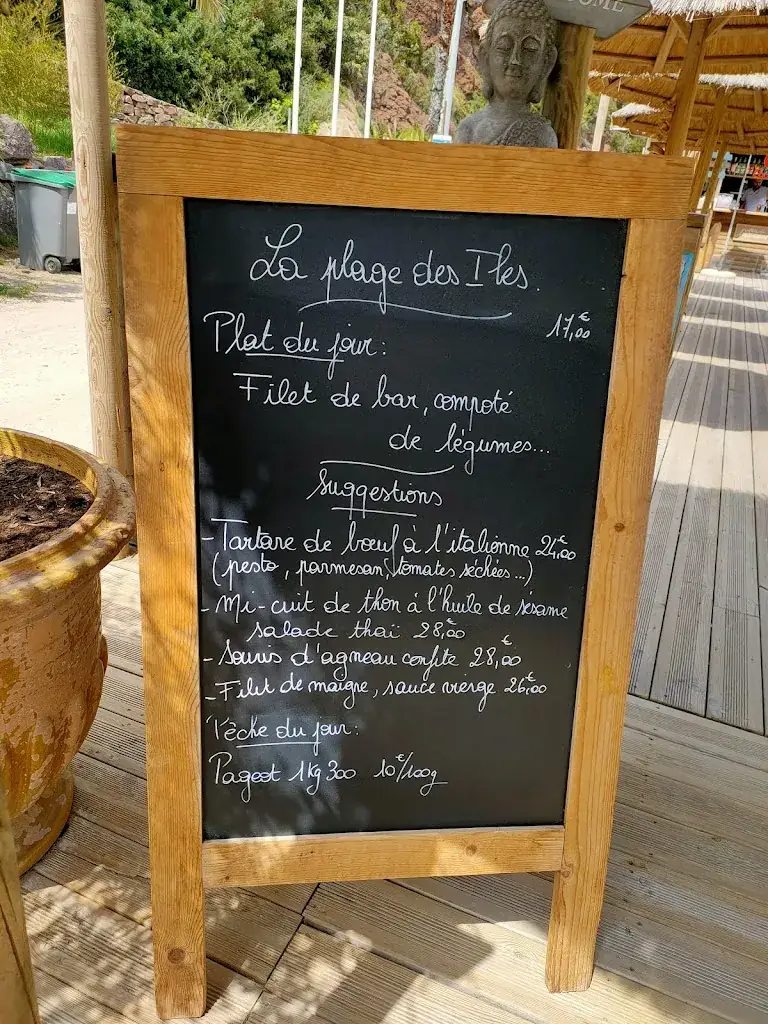 OME
La plage des Iles.
Plat du jour: 17,00€
Filet de bar, compoté
de légumes...
Suggestions
- Tartare de bœuf à l'italienne 24,00€
(pesto, parmesan, tomates séchées...)
- Mi-cuit de thon à l'huile de sésame
salade thaï 28,00€
- Souris d'agneau confite 28,00€
- Filet de maigre, sauce vierge 26,00€
Pêche du jour:
Pageot 1Kg300 10€/100g